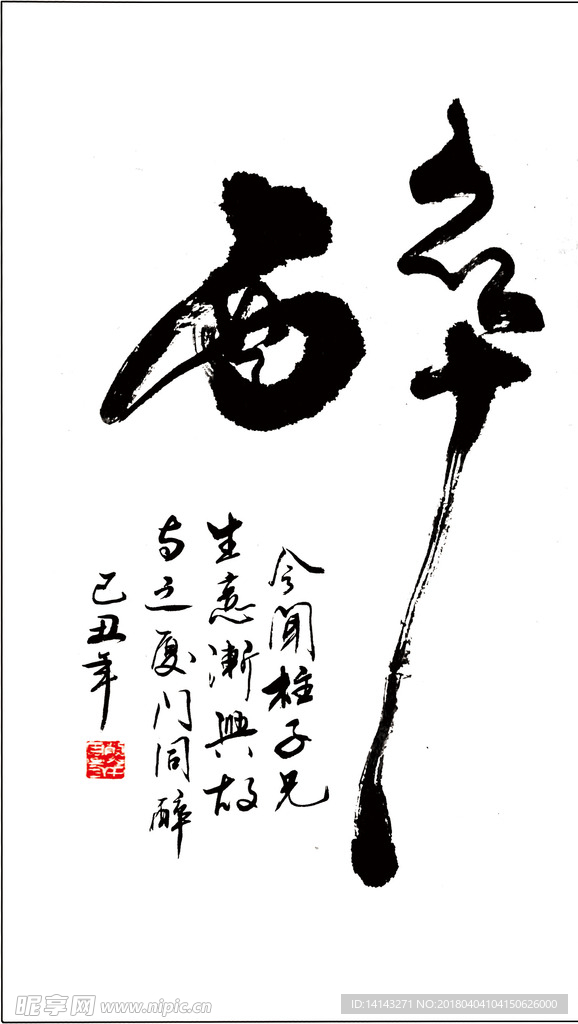 醉
今闻柱子兄
生意渐兴故
与之厦门同醉
己丑年
昵享网 www.nipic.cn
ID:14143271 NO:20180404104150626000